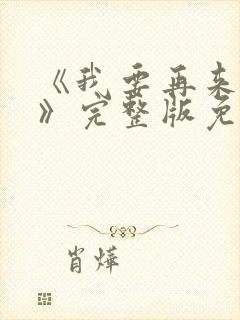 《我要再来
》完整版免
肖烨